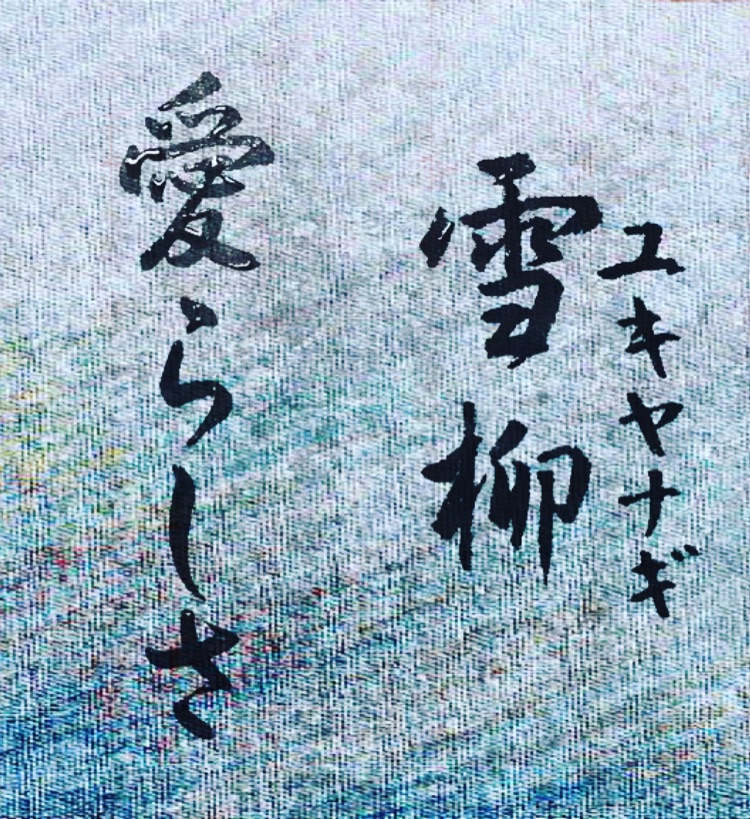 ユキヤナギ
雪柳
愛らしさ